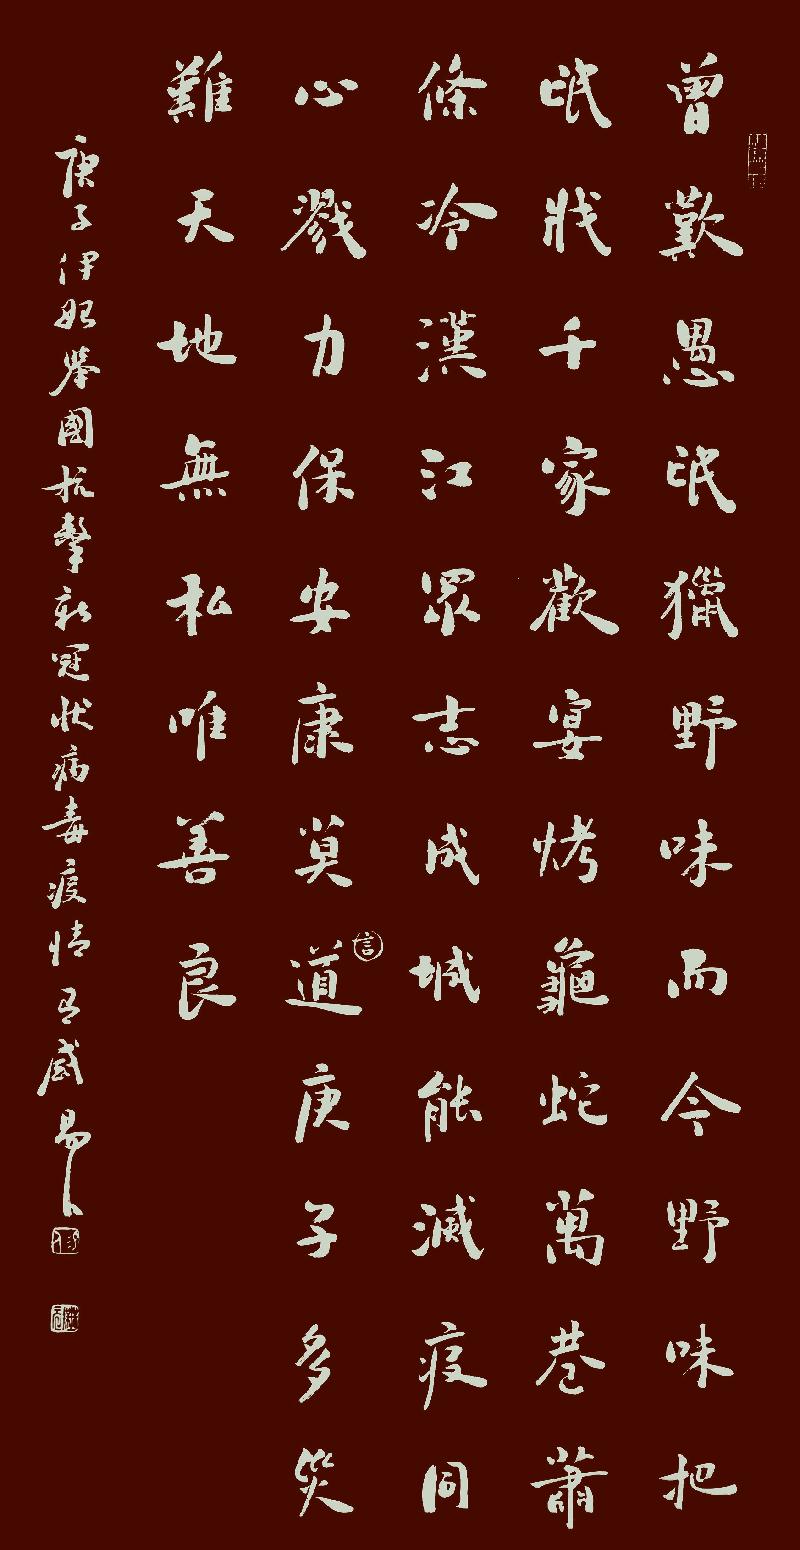 曾歎愚氓獵野味而今野味把
氓戕千家歡宴烤龜蛇萬巷蕭
條冷漢江眾志成城能滅疫同
心戮力保安康莫道庚子多災
言
難天地無私唯善良
庚子伊始舉國抗擊新冠狀病毒疫情有感易